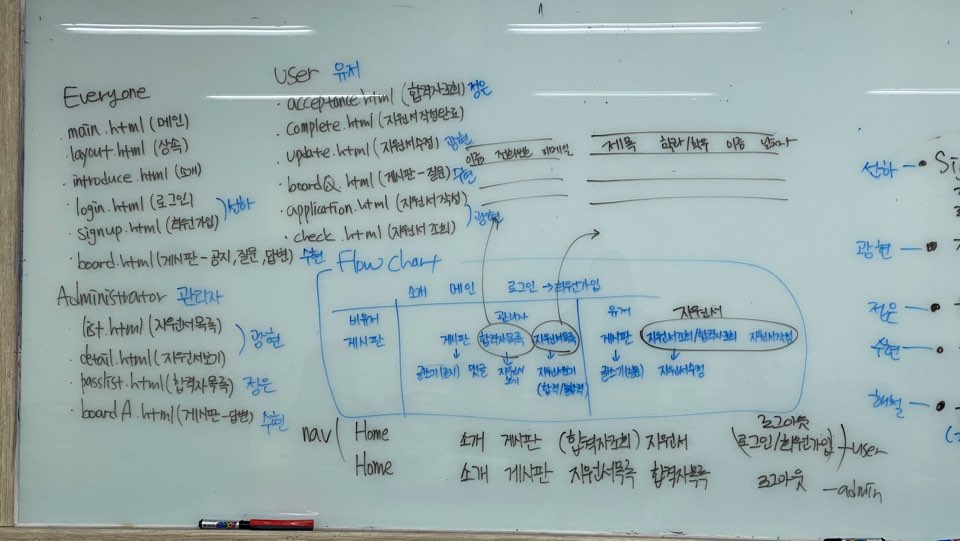 Everyone
· main.html (메인)
· layout.html (상속)
· introduce.html (소개)
· login.html (로그인)
· signup.html (회원가입)
선하
· board.html (게시판 - 공지, 질문, 답변) 수현
Administrator 관리자
list.html (지원서목록)
detail.html (지원서보기)
광현
· passlist.html (합격자목록) 정은
· boardA.html (게시판 - 답변) 수현
user 유저
· acceptance.html (합격자조회) 정은
· complete.html (지원서작성완료)
· update.html (지원서수정) 광현
· boardQ.html (게시판 - 질문) 수현
· application.html (지원서작성)
· check.html (지원서조회)
광현
이름 전화번호 이메일
제목 학과/학부 이름
Flow chart
소개 메인 로그인 → 회원가입
비유저
게시판
관리자
게시판 합격자목록 지원서목록
글쓰기(공지) 댓글 지원서보기 지원서보기
(합격/불합격)
유저 지원서
게시판 지원서조회/합격자조회 지원서작성
글쓰기(질문) 지원서수정
nav
Home 소개 게시판 (합격자조회) 지원서 로그아웃 (로그인/회원가입) - user
Home 소개 게시판 지원서목록 합격자목록 로그아웃 - admin
선하 - • Si
광현 - •
정은 - •
수현 - •
해철 - •